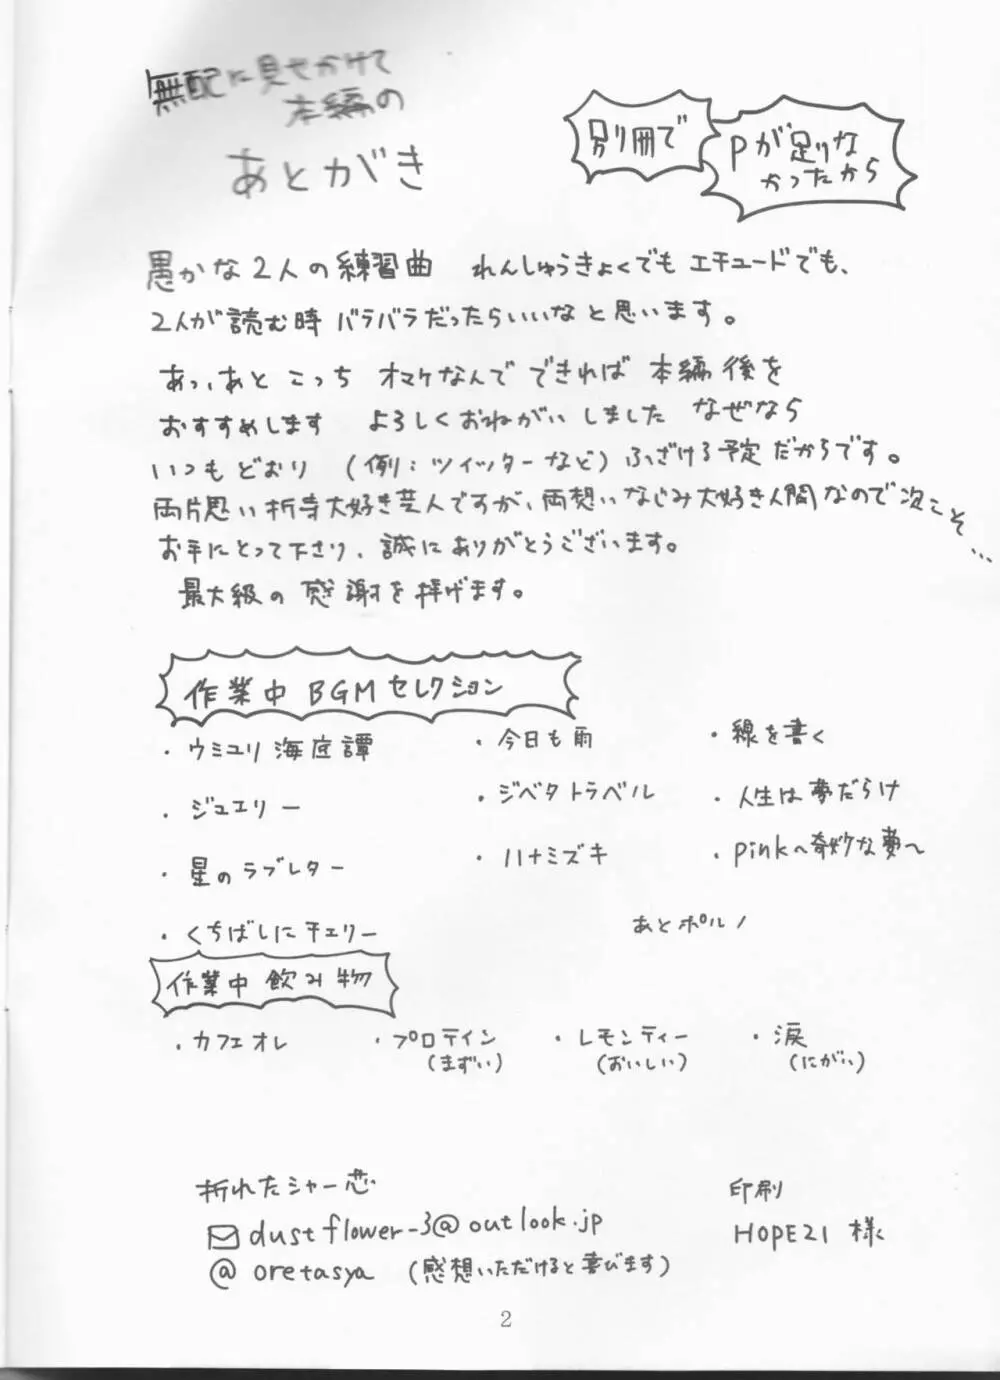 無配に見せかけて
本編の
あとがき
別冊で
Pが足りな
かったから
愚かな2人の練習曲 れんしゅうきょくでも エチュードでも、
2人が読む時 バラバラだったらいいなと思います。
あっ、あと こっち オマケなんで できれば 本編後を
おすすめします よろしくおねがいしました なぜなら
いつもどおり (例:ツイッターなど) ふざける予定だからです。
両片思い折寺大好き芸人ですが、両想いなじみ大好き人間なので次こそ…
お手にとって下さり、誠にありがとうございます。
最大級の感謝を捧げます。
作業中 BGMセレクション
・ウミユリ海底譚 ・今日も雨 ・線を書く
・ジュエリー ・ジベタトラベル ・人生は夢だらけ
・星のラブレター ・ハナミズキ ・pinkへ奇妙な夢へ
・くちばしにチェリー あとポルノ
作業中 飲み物
・カフェオレ ・プロテイン ・レモンティー ・涙
(まずい) (おいしい) (にがい)
折れたシャー芯 印刷
dustflower-3@outlook.jp HOPE21 様
@ oretasya (感想いただけると喜びます)
2